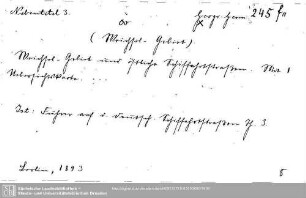 Nebentitel 3.
245 fn
(Weichsel-Gebiet)
Weichsel-Gebiet und östliche Schiffahrtstraßen. Mit 1
Uebersichtskarte. ...
In: Führer auf d. deutsch. Schiffahrtstraßen Th. 3.
Berlin, 1893
8
Sächsische Landesbibliothek -
Staats- und Universitätsbibliothek Dresden